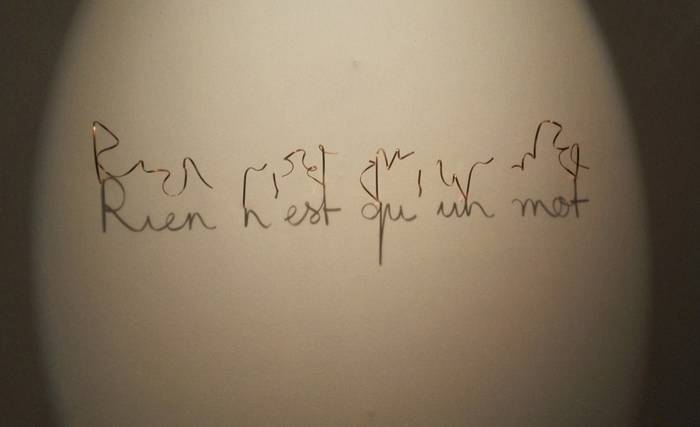 Rien n'est qu'un mot